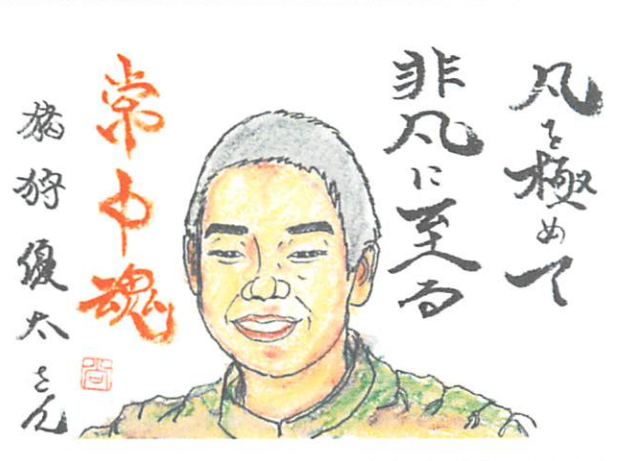 凡を極めて
非凡に至る
常中魂
猪狩優太さん